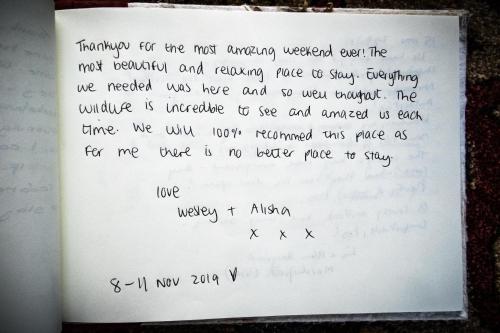 Thankyou for the most amazing weekend ever! The
most beautiful and relaxing place to stay. Everything
we needed was here and so well thought. The
wildlife is incredible to see and amazed us each
time. We will 100% recommed this place as
for me there is no better place to stay.
love
Wesley + Alisha
x x x
8-11 NOV 2019